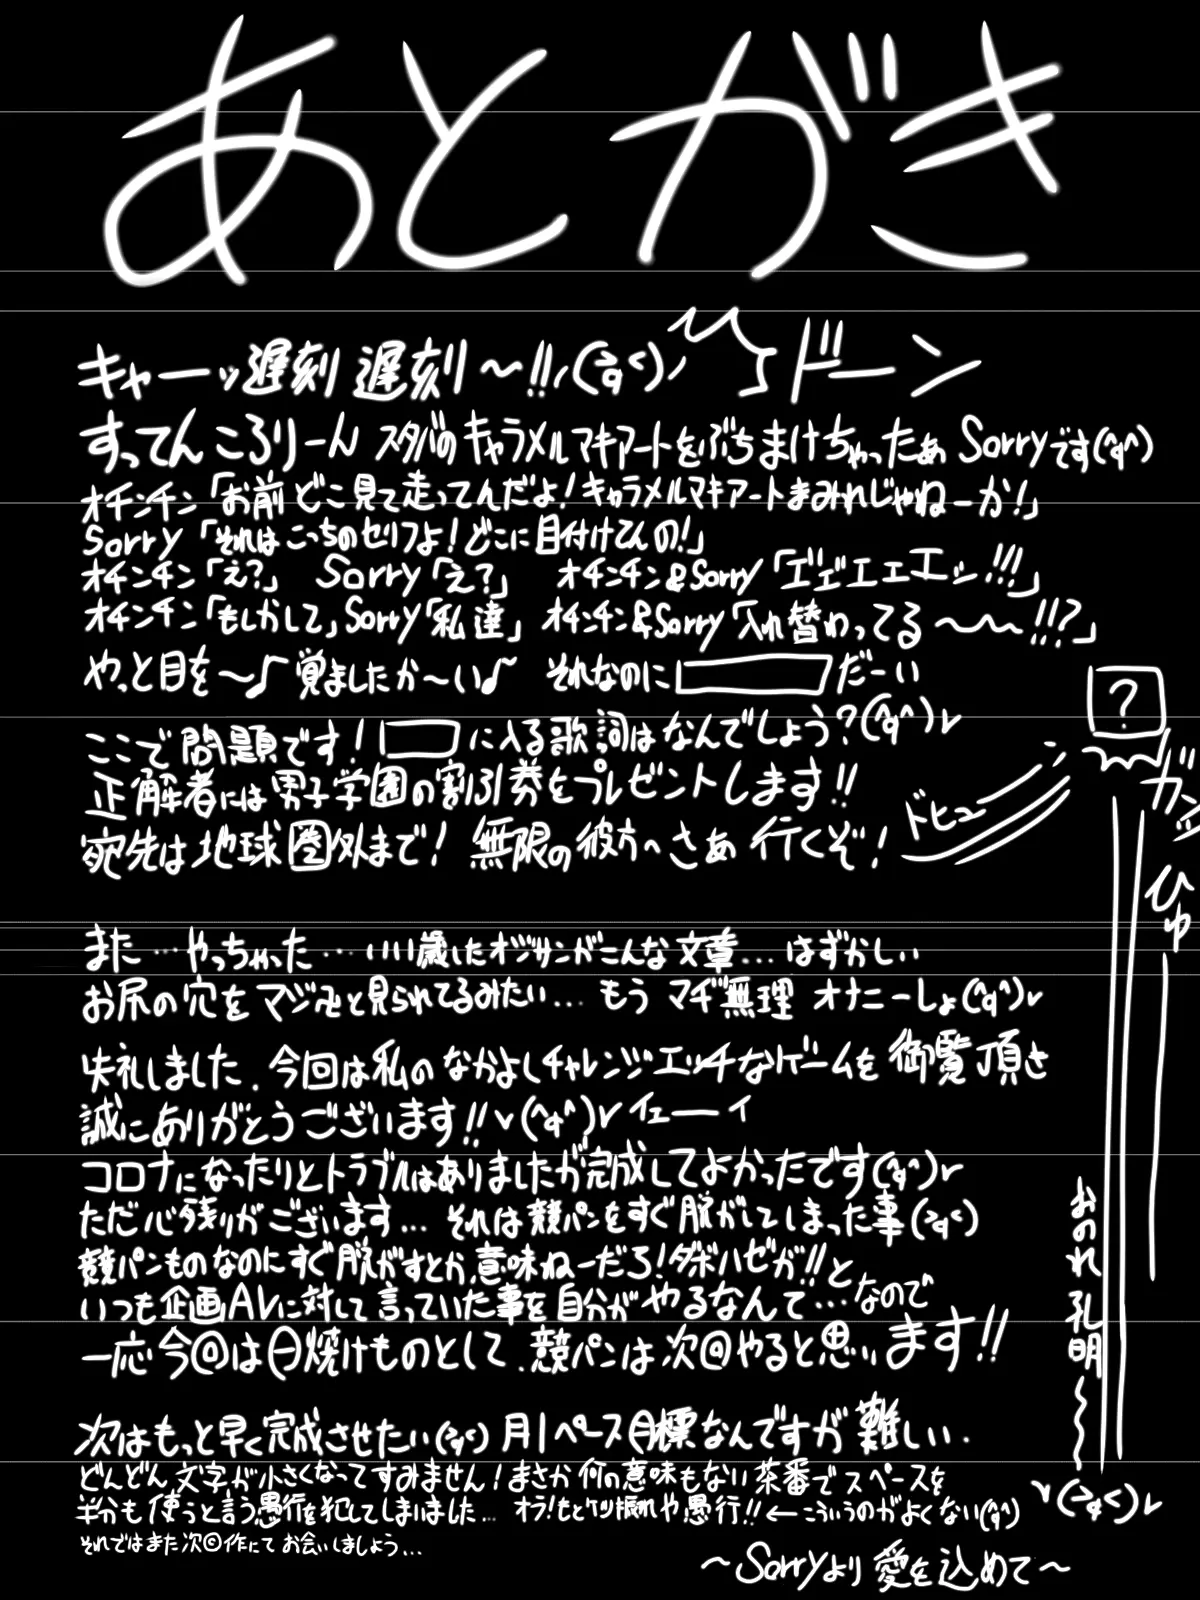 あとがき
キャーッ遅刻 遅刻〜!!
ドーン
すってんころりーん スタバのキャラメルマキアートをぶちまけちゃったぁ Sorryです(^q^)
オチンチン「お前どこ見て走ってんだよ!キャラメルマキアートまみれじゃねーか!」
Sorry「それはこっちのセリフよ!どこに目付けてんの!」
オチンチン「え?」 Sorry「え?」 オチンチン&Sorry「エ゛エ゛エエエッ!!!」
オチンチン「もしかして」Sorry「私達」 オチンチン&Sorry「入れ替わってる〜〜!!?」
やっと目を〜♪覚ましたか〜い♪ それなのに だーい
ここで問題です! に入る歌詞はなんでしょう?(^q^)v
正解者には男子学園の割引券をプレゼントします!!
宛先は地球圏外まで! 無限の彼方へさぁ行くぞ!
ドヒュー
?
ガンッ
ひゅ
また…やっちゃった…いい歳したオジサンがこんな文章…はずかしい
お尻の穴をマジマジと見られてるみたい…もう マヂ無理 オナニーしょ(^q^)v
失礼しました. 今回は私のなかよしチャレンジエッチなゲームを御覧頂き
誠にありがとうございます!!v(^q^)vイエーイ
コロナになったりとトラブルはありましたが完成してよかったです(^q^)v
ただ心残りがございます… それは競パンをすぐ脱がしてしまった事(>q<)
競パンものなのにすぐ脱がすとか意味ねーだろ!ダボハゼが!!と
いつも企画AVに対して言っていた事を自分がやるなんて…なので
一応今回は日焼けものとして、競パンは次回やると思います!!
次はもっと早く完成させたい(>q<)月1ペース目標なんですが難しい.
どんどん文字が小さくなってすみません!まさか何の意味もない茶番でスペースを
半分も使うと言う愚行を犯してしまいました… オラ!もとケツ振れや愚行!!←こういうのがよくない(^q^)
それではまた次回作にてお会いしましょう…
おのれ孔明〜〜
v(>q<)v
〜Sorryより愛を込めて〜